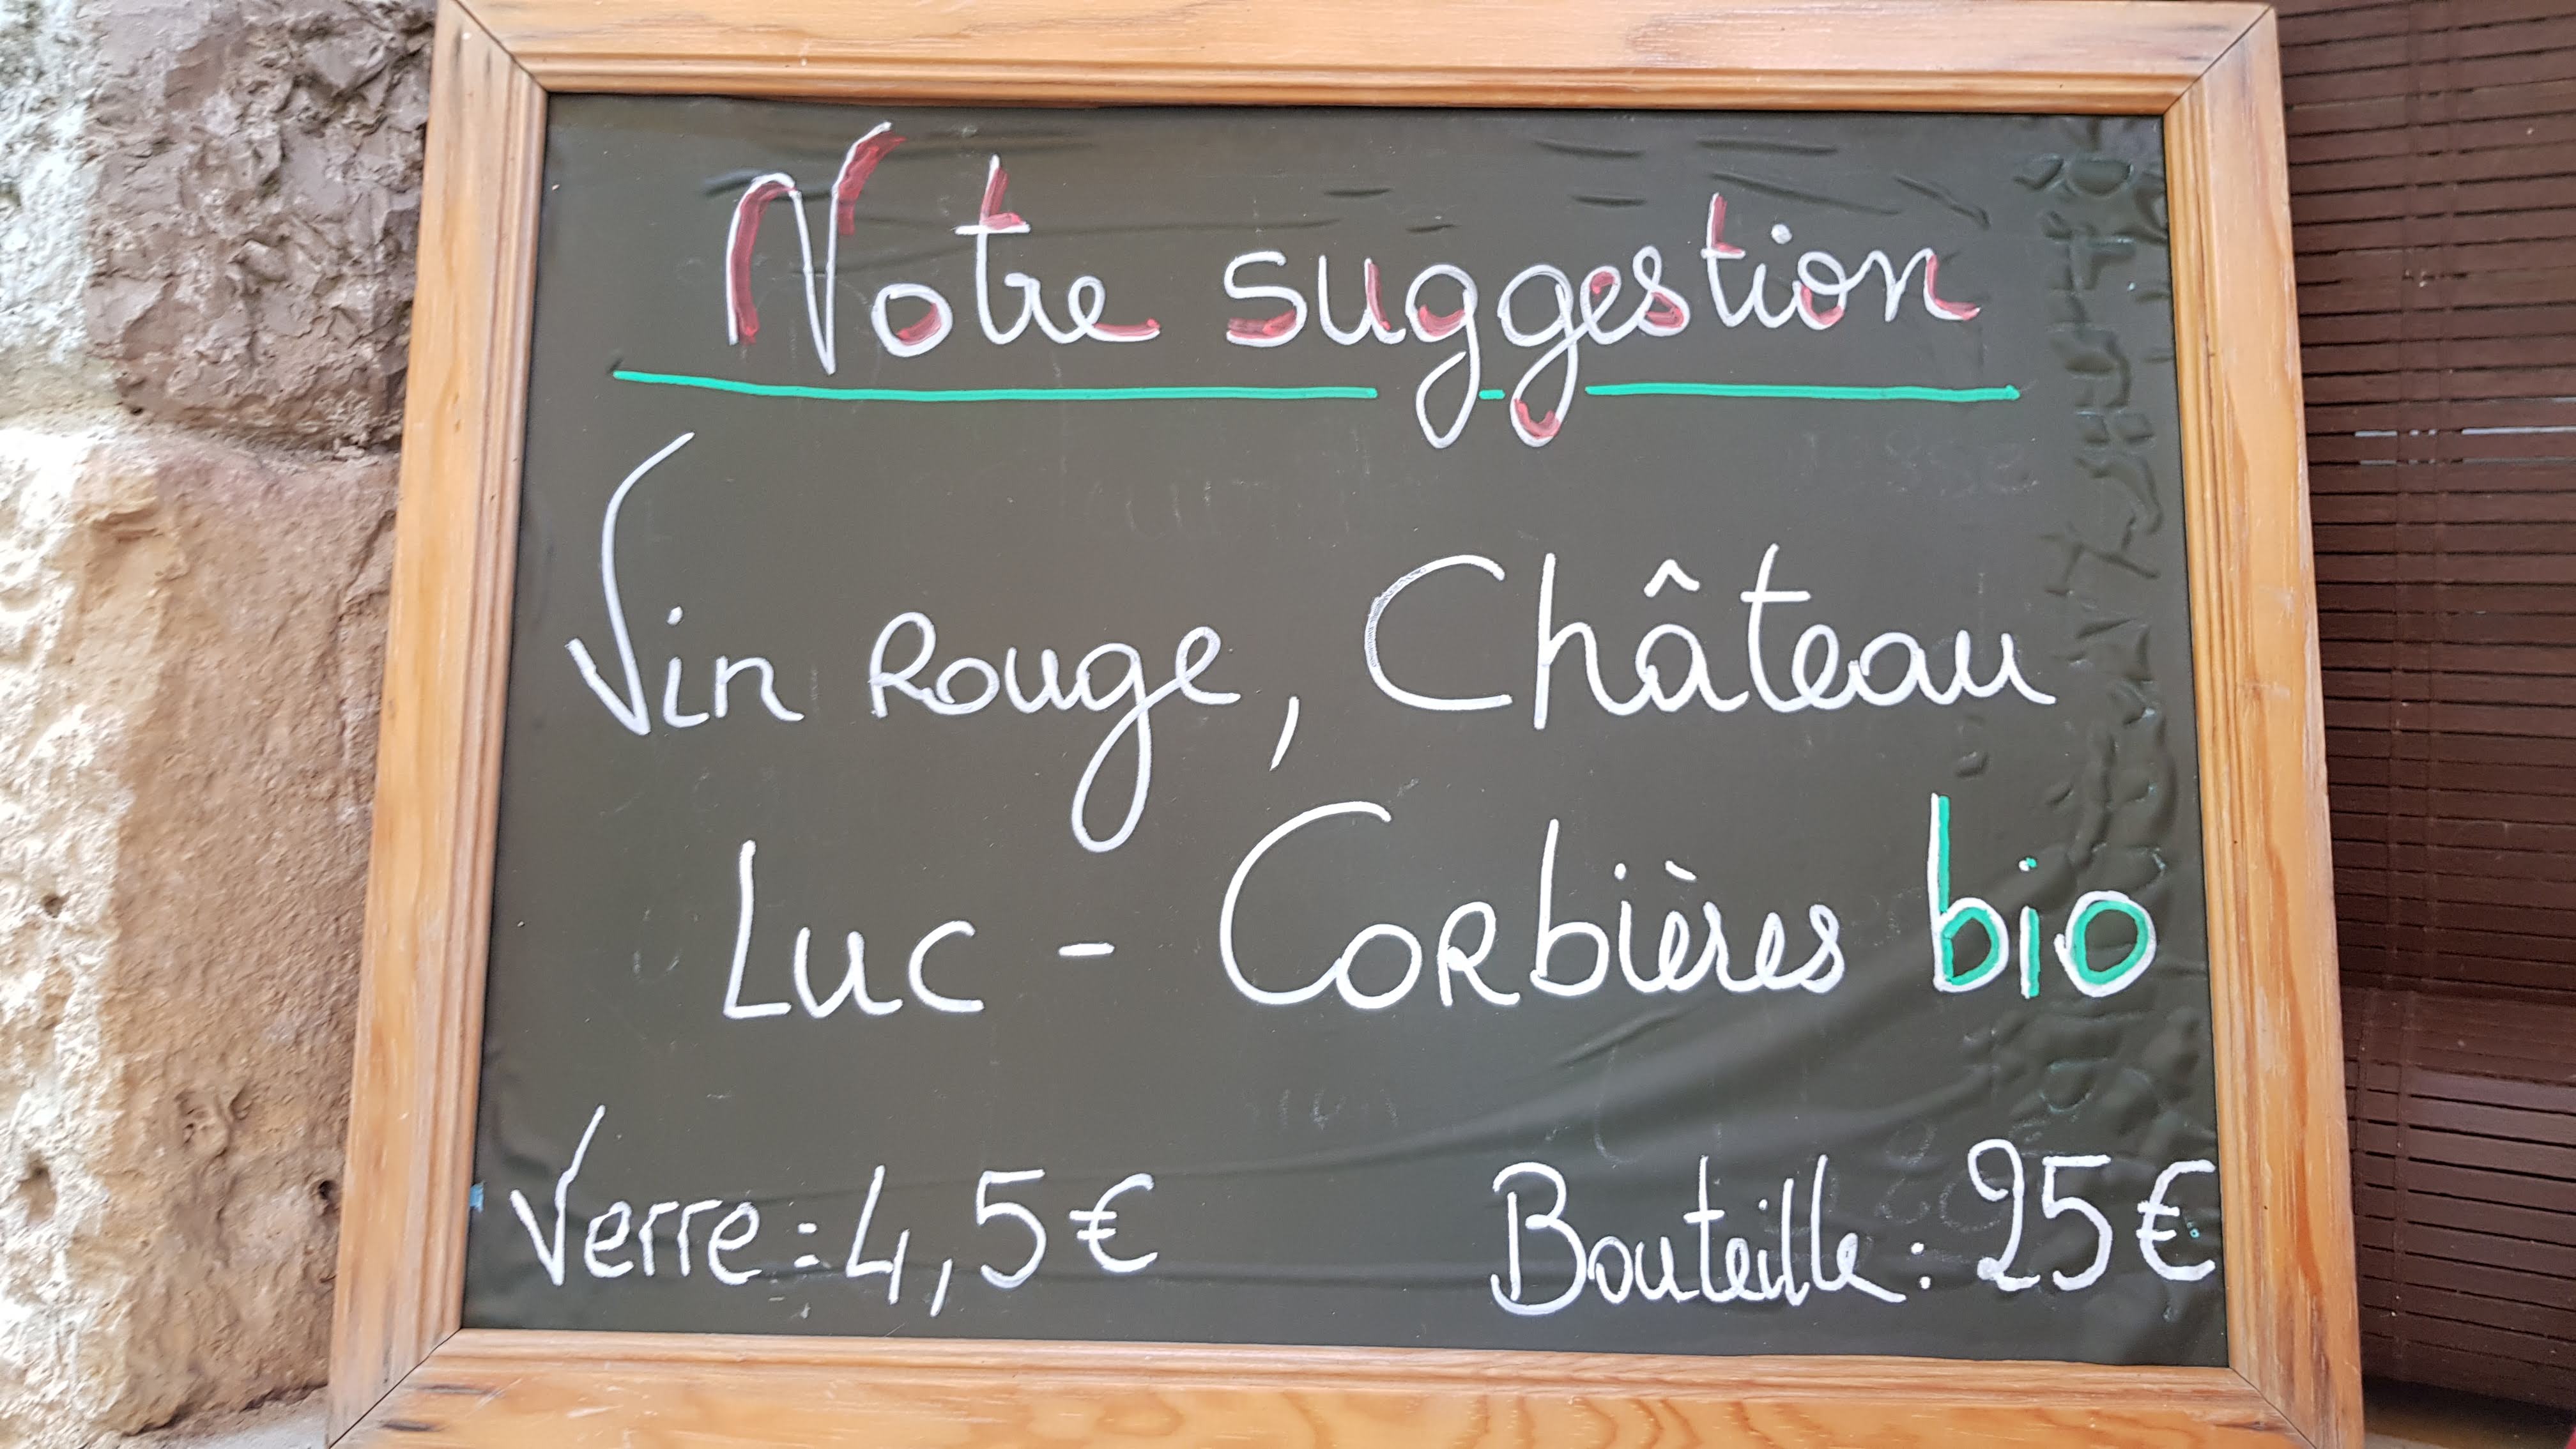 Notre suggestion
Vin Rouge, Château
Luc - Corbières bio
Verre : 4,5€ Bouteille : 25€